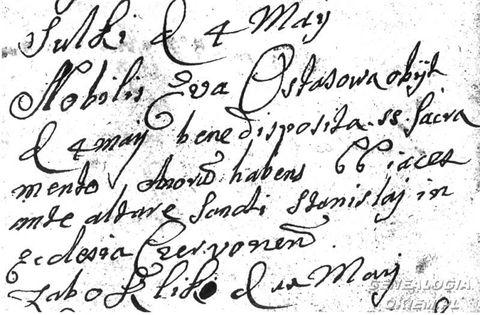 Sulki d 4 May
Nobilis Eva Ostasowa obijt
d 4 maij bene disposita ss Sacra
mento habens 66 iacet
ante altare Sancti Stanislaj in
Ecclesia Czervonen
Zabokliki d 12 Maij
GENEALOGIA
OKIEM.PL